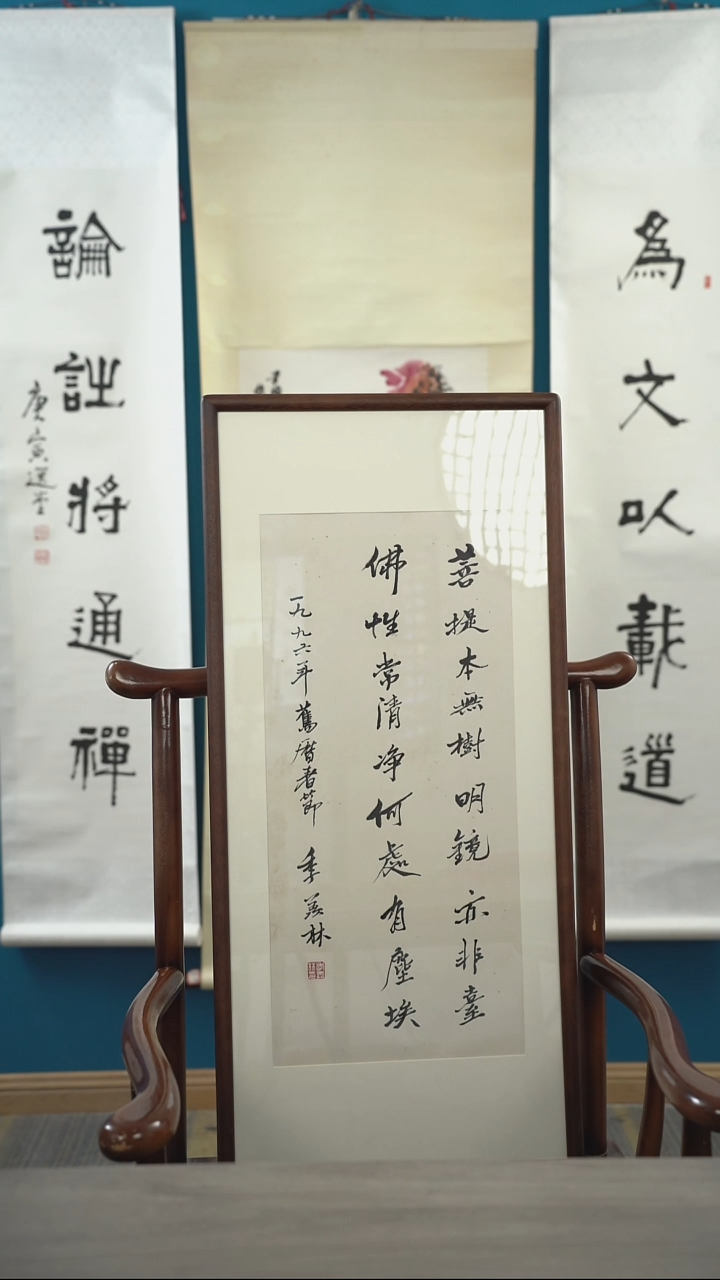 為文以載道
菩提本無樹明鏡亦非臺
佛性常清净何處有塵埃
一九九六年舊曆春節 季羨林
論詩將通禪
庚寅選堂